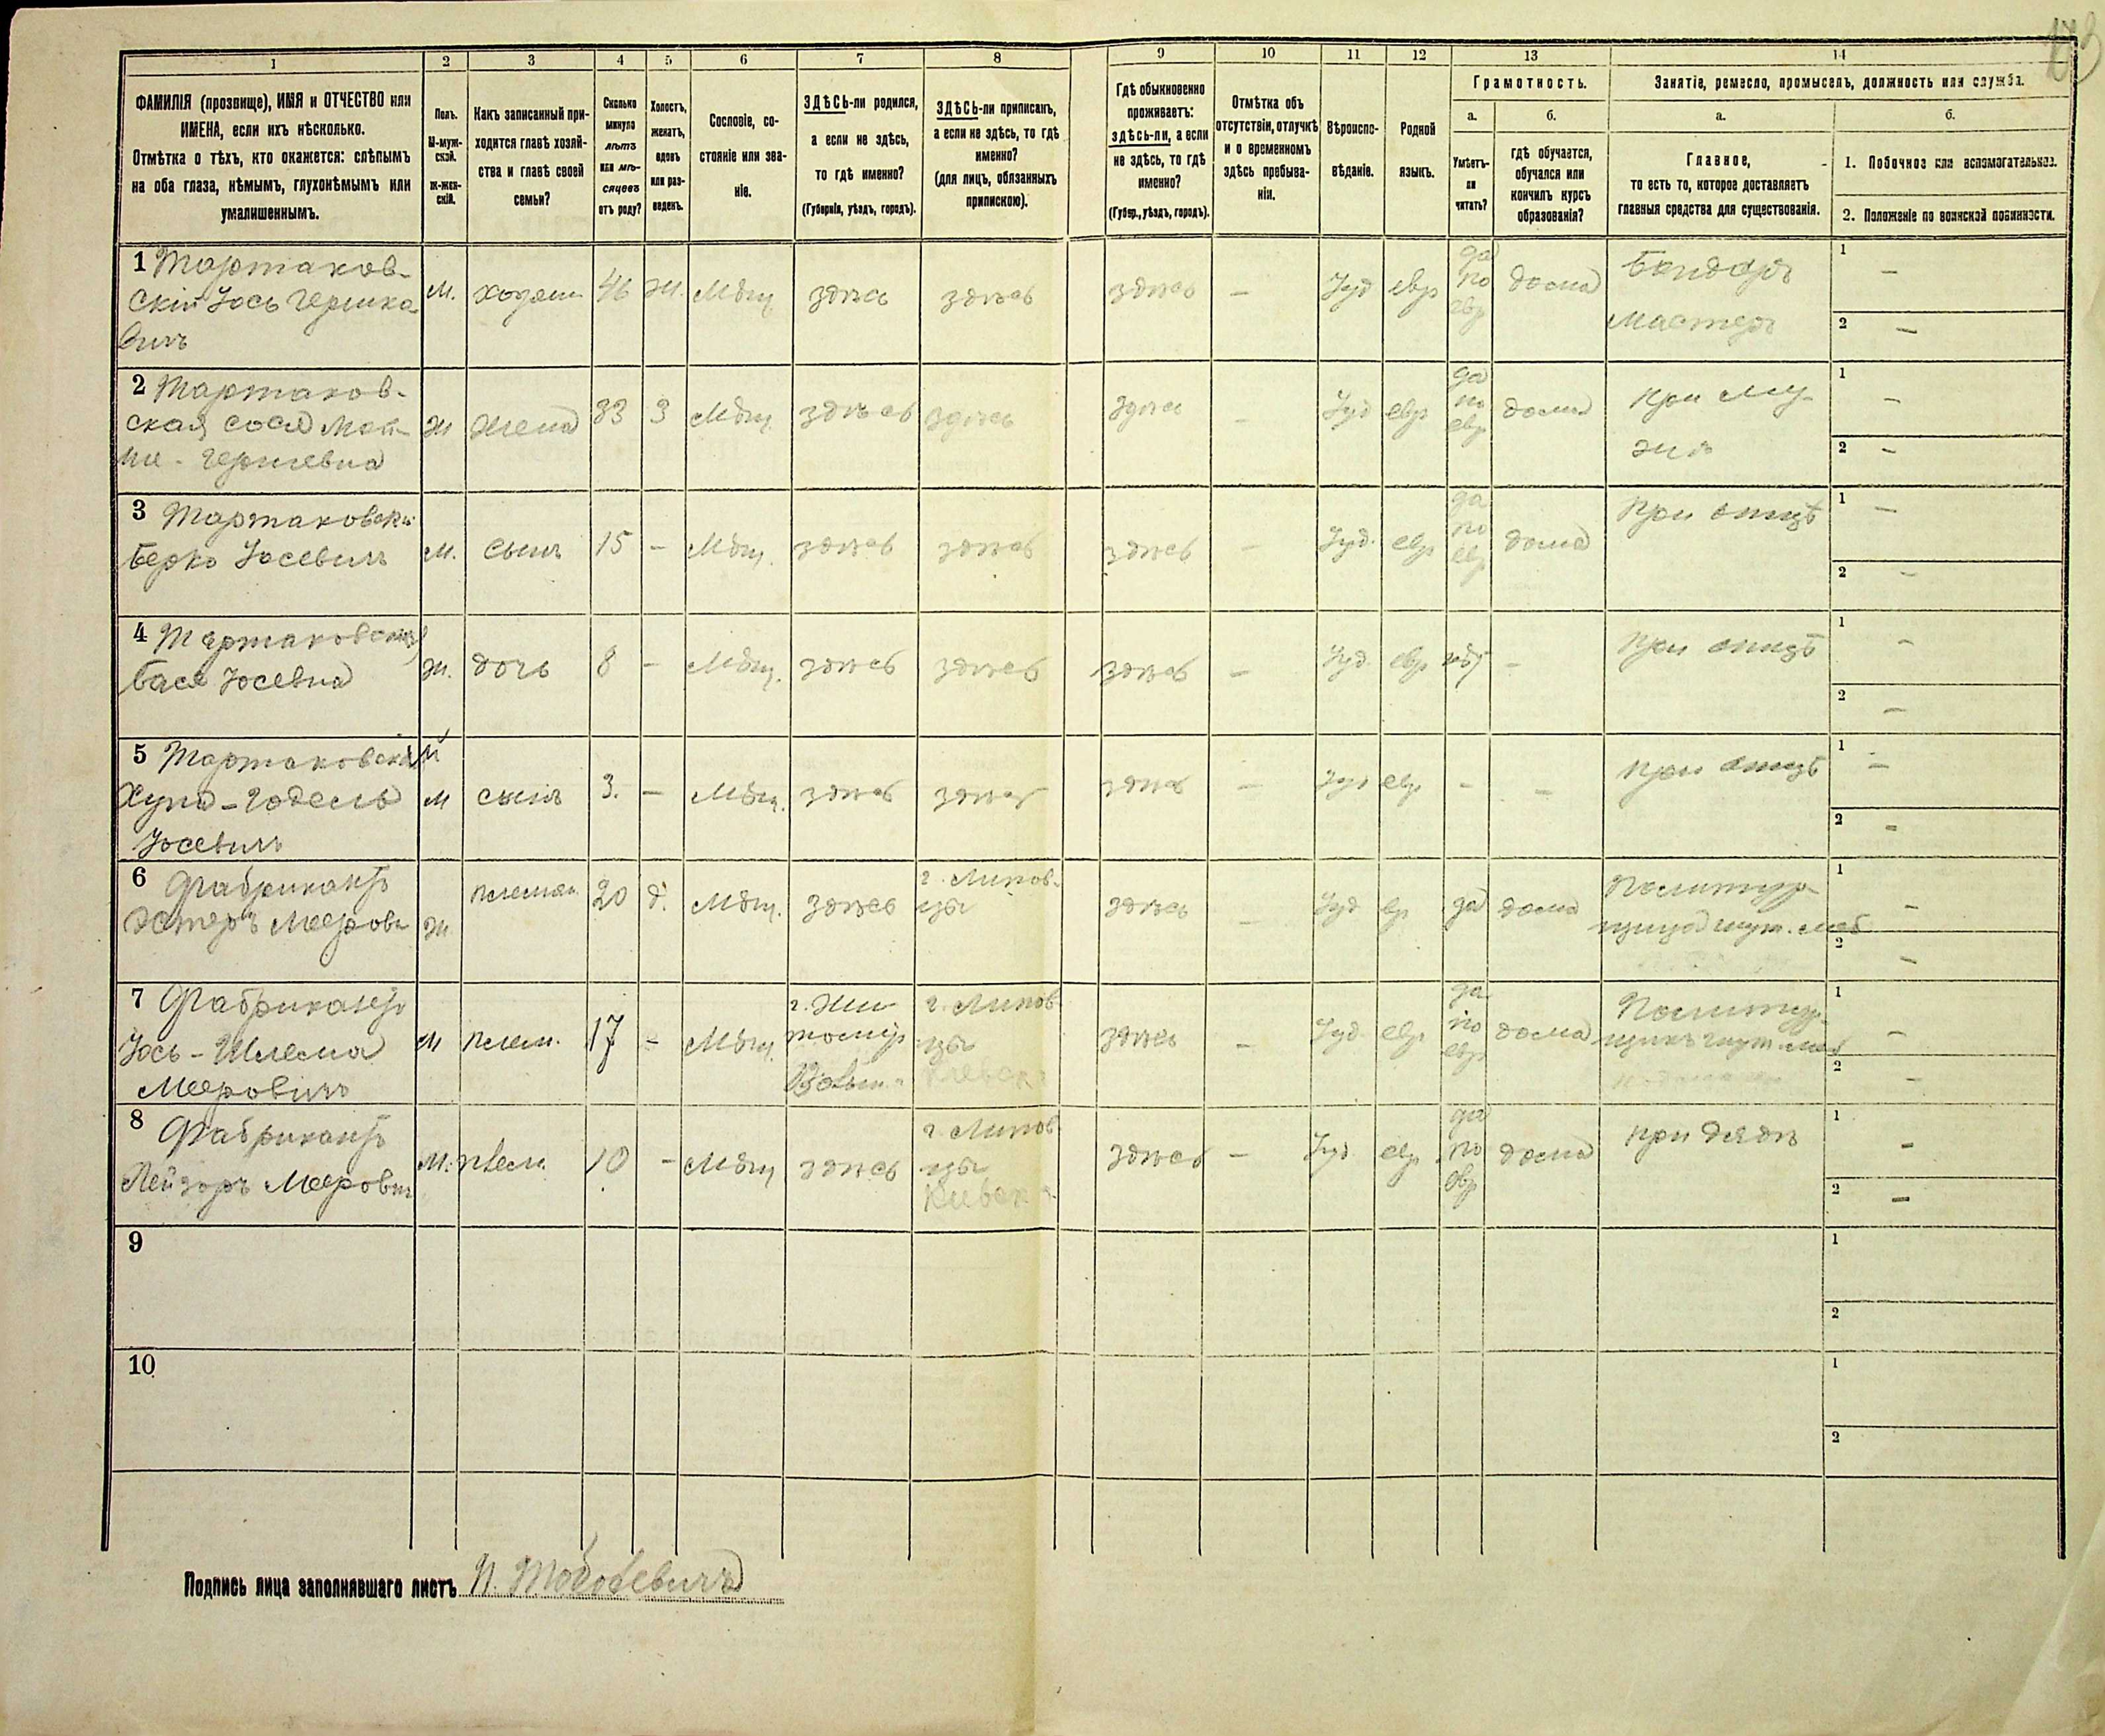 1 2 3 4 5 6 7 8 9 10 11 12 13 14
ФАМИЛІЯ (прозвище), ИМЯ и ОТЧЕСТВО или
ИМЕНА, если ихъ нѣсколько.
Отмѣтка о тѣхъ, кто окажется: слѣпымъ
на оба глаза, нѣмымъ, глухонѣмымъ или
умалишеннымъ.
Полъ.
М-муж-
ской.
ж-жен-
скій.
Какъ записанный при-
ходится главѣ хозяй-
ства и главѣ своей
семьи?
Сколько
минуло
лѣтъ
или мѣ-
сяцевъ
отъ роду?
Холостъ,
женатъ,
вдовъ
или раз-
веденъ.
Сословіе, со-
стояніе или зва-
ніе.
ЗДѢСЬ-ли родился,
а если не здѣсь,
то гдѣ именно?
(Губернія, уѣздъ, городъ).
ЗДѢСЬ-ли приписанъ,
а если не здѣсь, то гдѣ
именно?
(для лицъ, обязанныхъ
припискою).
Гдѣ обыкновенно
проживаетъ:
здѣсь-ли, а если
не здѣсь, то гдѣ
именно?
(Губер., уѣздъ, городъ).
Отмѣтка объ
отсутствіи, отлучкѣ
и о временномъ
здѣсь пребыва-
ніи.
Вѣроиспо-
вѣданіе.
Родной
языкъ.
Грамотность.
а.
Умѣетъ-
ли
читать?
б.
гдѣ обучается,
обучался или
кончилъ курсъ
образованія?
Занятіе, ремесло, промыселъ, должность или служба.
а.
Главное,
то есть то, которое доставляетъ
главныя средства для существованія.
б.
1. Побочное или вспомогательное.
2. Положеніе по воинской повинности.
1 Тартаков-
скій Іось Гершко
вичъ
М. хозяин 46 ж. Мѣщ. здѣсь здѣсь здѣсь — Іуд евр
да
по
евр
дома
Бондарь
мастеръ
1 —
2 —
2 Тартаков-
ская Сося
Гершевна
ж жена 33 З Мѣщ. здѣсь здѣсь здѣсь — Іуд евр
да
по
евр
дома
при му-
жѣ
1 —
2 —
3 Тартаковскі
Берко Іосевичъ
М. сынъ 15 — Мѣщ. здѣсь здѣсь здѣсь — Іуд. евр
да
по
евр
дома
при отцѣ
1 —
2 —
4 Тартаковская
Бася Іосевна
ж. дочь 8 — Мѣщ. здѣсь здѣсь здѣсь — Іуд. евр нѣт —
при отцѣ
1 —
2 —
5 Тартаковскій
Хуна-Годель
Іосевичъ
М сынъ 3. — Мѣщ. здѣсь здѣсь здѣсь — Іуд евр. — —
при отцѣ
1 —
2 —
6 Фабрикантъ
Эстеръ Меерова
ж племян. 20 д. Мѣщ. здѣсь
г. Липов-
цы
здѣсь — Іуд ев да дома
1 —
2 —
7 Фабрикантъ
Іось-Шлема
Мееровичъ
М племн. 17 — Мѣщ.
г. Жи-
томир
Волын.
г. Липов
цы
Киевск.
здѣсь — Іуд. евр
да
по
евр
дома
1 —
2 —
8 Фабрикантъ
Лейзоръ Меерович
М. племн. 10 — Мѣщ здѣсь
г. Липов
цы
Киевск.
здѣсь — Іуд евр.
да
по
евр
дома
при дядѣ
1 —
2 —
9
1
2
10
1
2
Подпись лица заполнявшаго листъ